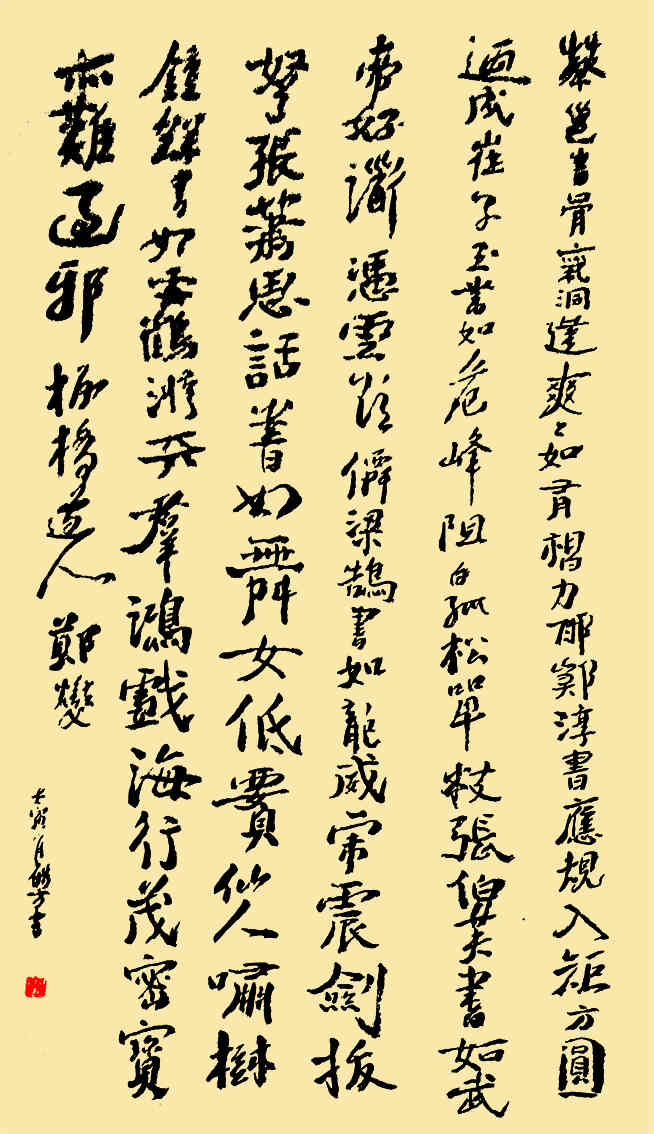 蔡邕書骨氣洞達爽〻如有神力邯鄲淳書應規入鉅方圓
迺成崔子玉書如危峰阻日孤松單枝張伯英書如武
帝好衟憑雲欲僊梁鵠書如龍威虎震劍拔
弩張蕭思話書如舞女低腰仙人嘯樹
鍾繇書如雲鶴游天羣鴻戲海行茂密實
亦難過邪 板橋道人 鄭燮
書